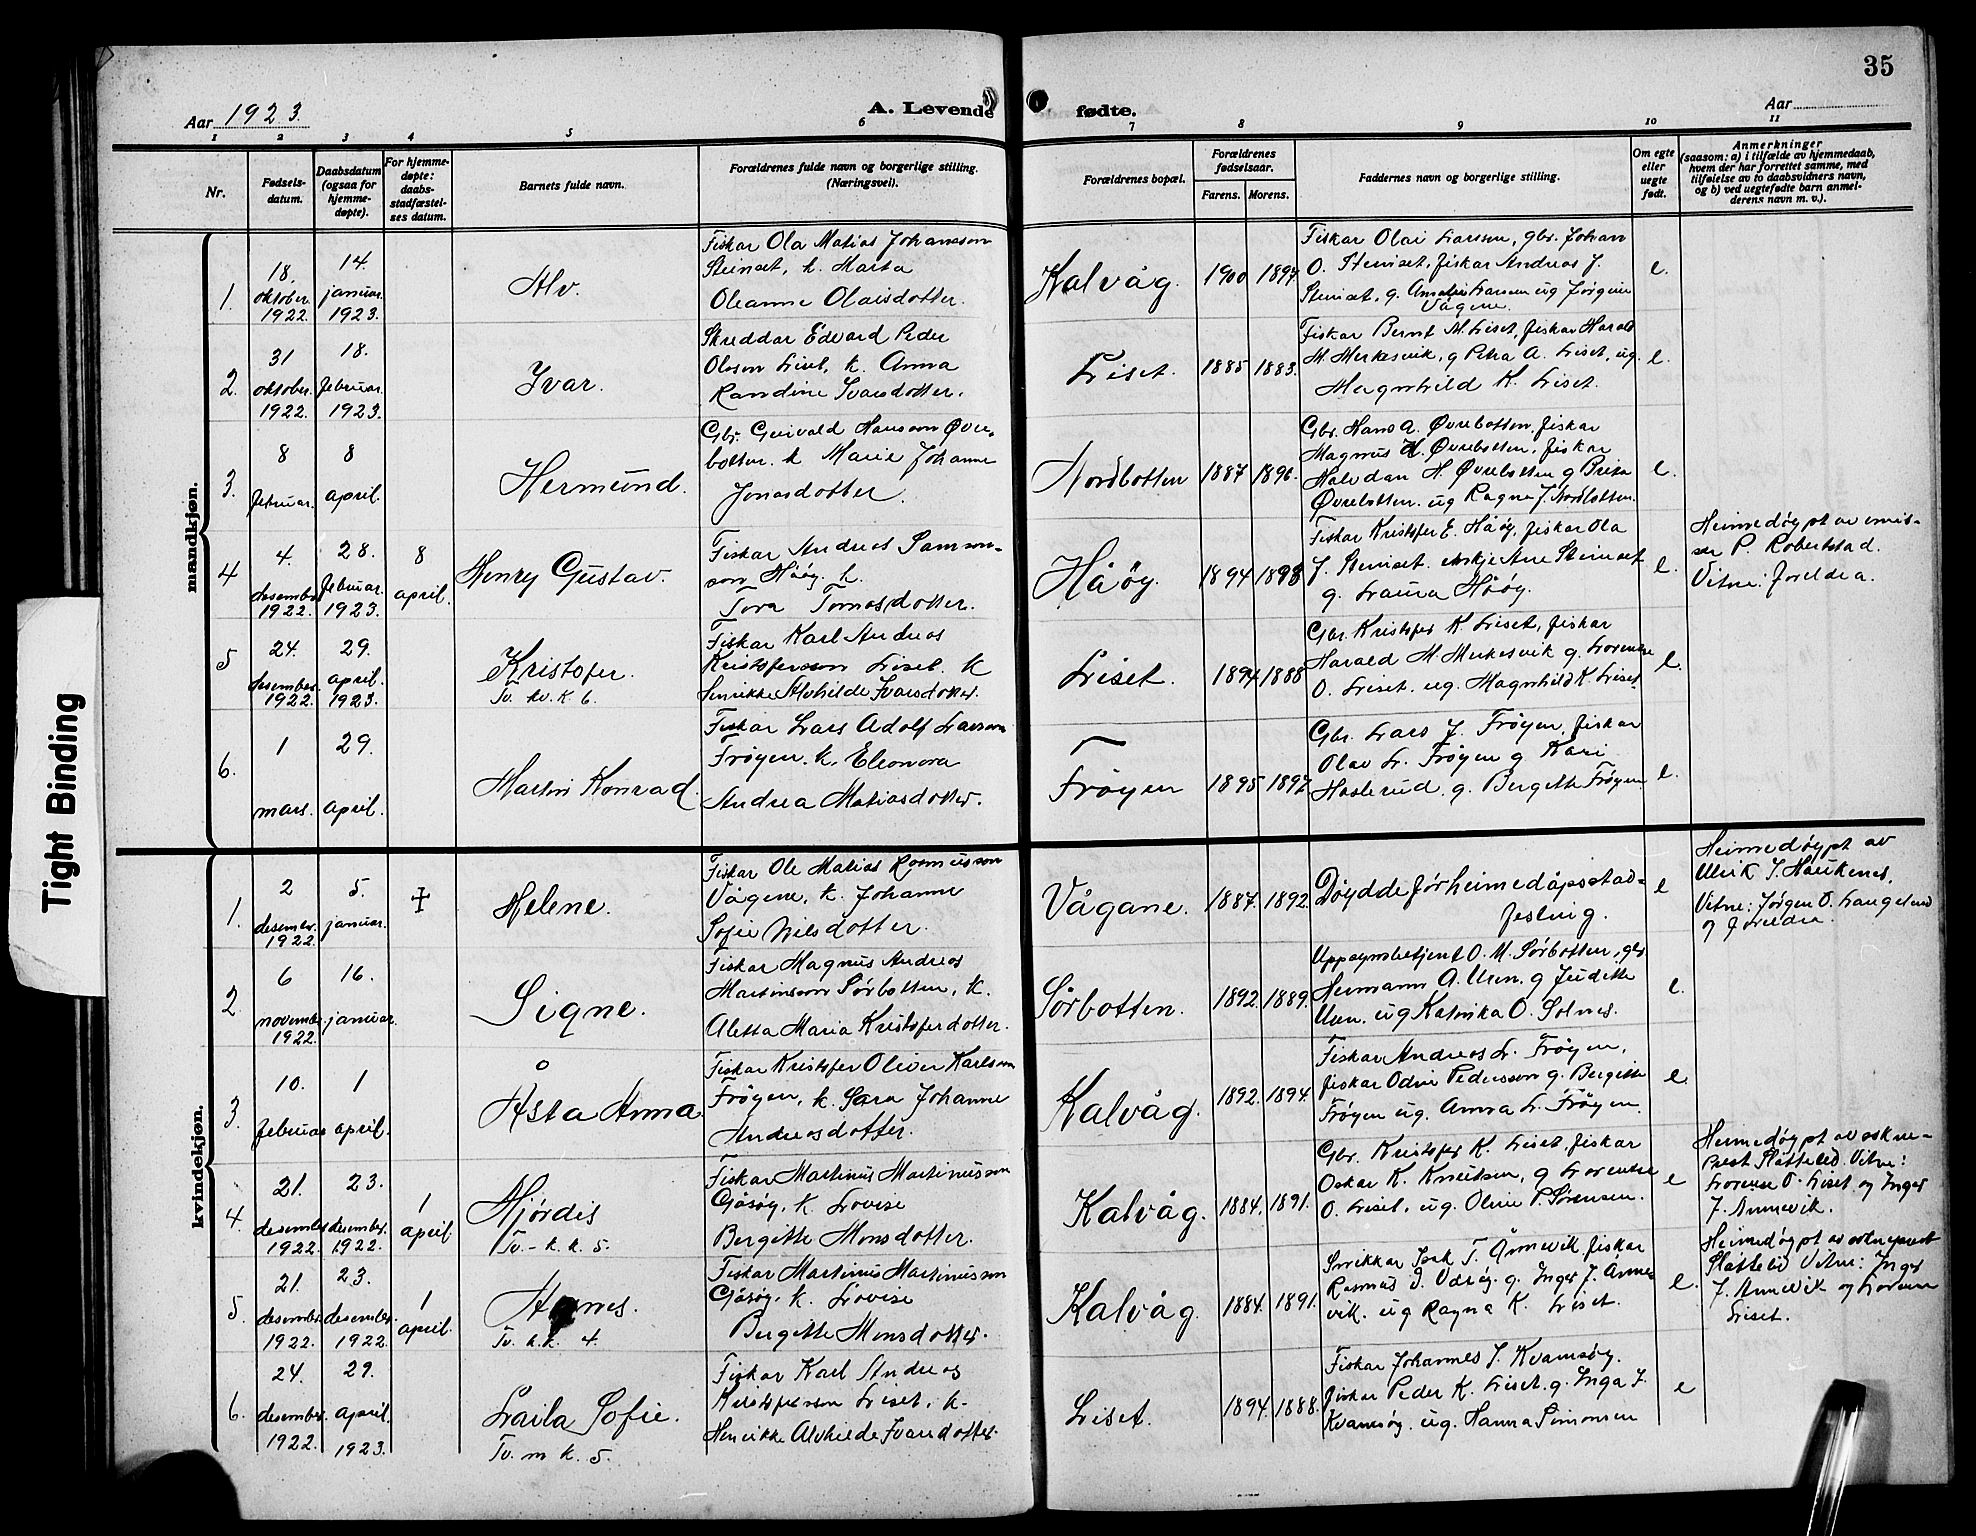 35
Aar 1923.
A. Levende fødte.
Aar
1 2 3 4 5 6 7 8 9 10 11
Nr.
Fødsels-
datum.
Daabsdatum
(ogsaa for
hjemme-
døpte).
For hjemme-
døpte:
daabs-
stadfæstel-
ses datum.
Barnets fulde navn.
Forældrenes fulde navn og borgerlige stilling.
(Næringsvei).
Forældrenes bopæl.
Forældrenes
fødselsaar.
Farens. Morens.
Faddernes navn og borgerlige stilling.
Om egte
eller
uegte
født.
Anmerkninger
(saasom: a) i tilfælde av hjemmedaab,
hvem der har forrettet samme, med
tilføielse av to daabsvidners navn,
og b) ved uegtefødte barn anmel-
derens navn m. v.).
mandkjøn.
1.
18.
oktober
1922.
14.
januar.
1923.
Alv.
Fiskar Ola Matias Johansson
Steinset, k. Marta
Oleanne Olaisdotter.
Kalvåg.
1900 1897
Fiskar Olai Larssen, gbr. Johan
O. Steinset, fiskar Andreas J.
Steinset, g. Larsen ug Jørgine
Vågene.
e.
2.
31
oktober.
1922.
18.
februar.
1923.
Ivar.
Skreddar Edvard Peder
Olsson Liset, k. Anna
Randine Ivarsdotter.
Liset.
1885 1883.
Fiskar Bernt M. Liset, fiskar Harald
M. Merkesvik, g Petra A. Liset, ug.
Magnhild K. Liset.
e.
3.
8
februar.
8
april.
Hermund.
Gbr. Hansson Øvre-
botten. k Marie Johanne
Jonasdotter.
Nordbotten
1887 1896.
Gbr. Hans A. Øvrebotten, fiskar
Magnus H. Øvrebotten, fiskar
Halvdan H. Øvrebotten g Brita
Øvrebotten. ug Ragna J. Nordbotten.
e.
4
4.
desember
1922.
28.
februar.
1923.
8
april.
Henry Gustav.
Fiskar Andreas Samson-
son Håøy. k.
Tora Tomasdotter.
Håøy.
1894 1898
Fiskar Kristofer E. Håøy, fiskar Ola
J. Steinset. enkje Ane Steinset
g. Laura Håøy.
e.
Heimedøypt av emis-
sær P. Robertstad.
Vitne: foreldra.
5
24.
desember.
1922.
29.
april.
1923.
Kristofer.
Tv. kv. k 6.
Fiskar Karl Andreas
Kristofersson Liset. k
Henrikke Alvhilde Ivarsdotter.
Liset.
1894 1888
Gbr. Kristofer K. Liset, fiskar
Harald M. Merkesvik g. Lorense
O. Liset. ug. Magnhild K. Liset.
e.
6.
1
mars.
29.
april.
Martin Konrad.
Fiskar Lars Adolf Larsson
Frøyen. k. Eleonora
Andrea Matiasdotter.
Frøyen
1895 1892
Gbr. Lars J. Frøyen, fiskar
Olav L. Frøyen g Kari
Haslerud. g. Bergitte Frøyen
e.
kvindekjøn.
1.
2
desember.
1922.
5.
januar.
+
Helene.
Fiskar Ole Matias Rasmusson
Vågene, k. Johanne
Sofie Nilsdotter.
Vågane.
1887. 1892.
Døydde før heimedåpsstad-
festing.
e
Heimedøypt av
Ulrik J. Haukenes.
Vitne: Jørgen O. Langelund
og foreldra.
2.
6
november.
1922.
16.
januar.
Signe.
Fiskar Magnus Andreas
Martinsson Sørbotten, k.
Aletta Maria Kristoferdotter.
Sørbotten.
1892. 1889.
Uppsynsbetjent O. M. Sørbotten, gbr.
Hermann A. Uren. g Juditte
Uren. ug Katrika O. Solnes.
e.
3.
10.
februar
1
april.
Åsta Anna
Fiskar Kristofer Oliver Karlsson
Frøyen, k. Sara Johanne
Andreasdotter.
Kalvåg.
1892. 1894.
Fiskar Andreas L. Frøyen,
fiskar Odin Pedersson g. Bergitte
Frøyen ug. Anna L. Frøyen.
e.
4.
21.
desember
1922.
23.
desember.
1922.
1
april
Hjørdis
Tv. - k. k. 5.
Fiskar Martinus Martinusson
Gåsøy. k. Lovise
Bergitte Monsdotter.
Kalvåg.
1884. 1891.
Gbr. Kristofer K. Liset, fiskar
Oskar K. Knutsen, g Lorentse
O. Liset. ug. Oline P. Sørensen.
e
Heimedøypt av sokne-
prest Slåttelid. Vitne:
Lorense O. Liset og Inger
J. Årnevik.
5.
21.
desember.
1922.
23.
desember.
1922
1
april.
Tv. k. k. 4.
Fiskar Martinus Martinusson
Gåsøy. k. Lovise
Bergitte Monsdotter.
Kalvåg.
1884. 1891.
Snikkar Isak T. Årnevik, fiskar
Rasmus g. Inger J. Årne-
vik. ug Ragna K. Liset.
e.
Heimedøypt av sokneprest
Slåttelid Vitne: Inger
J. Årnevik og Lorense
Liset.
6.
24.
desember.
1922.
29.
april.
1923.
Laila Sofie.
Tv. m k. 5.
Fiskar Karl Andreas
Kristofersson Liset. k.
Henrikke Alvhilde Ivarsdotter.
Liset.
1894. 1888.
Fiskar Johannes J. Kvamsøy.
fiskar Peder K. Liset. g. Inga J.
Kvamsøy. ug. Hanna Simonsen
e
Tight Binding